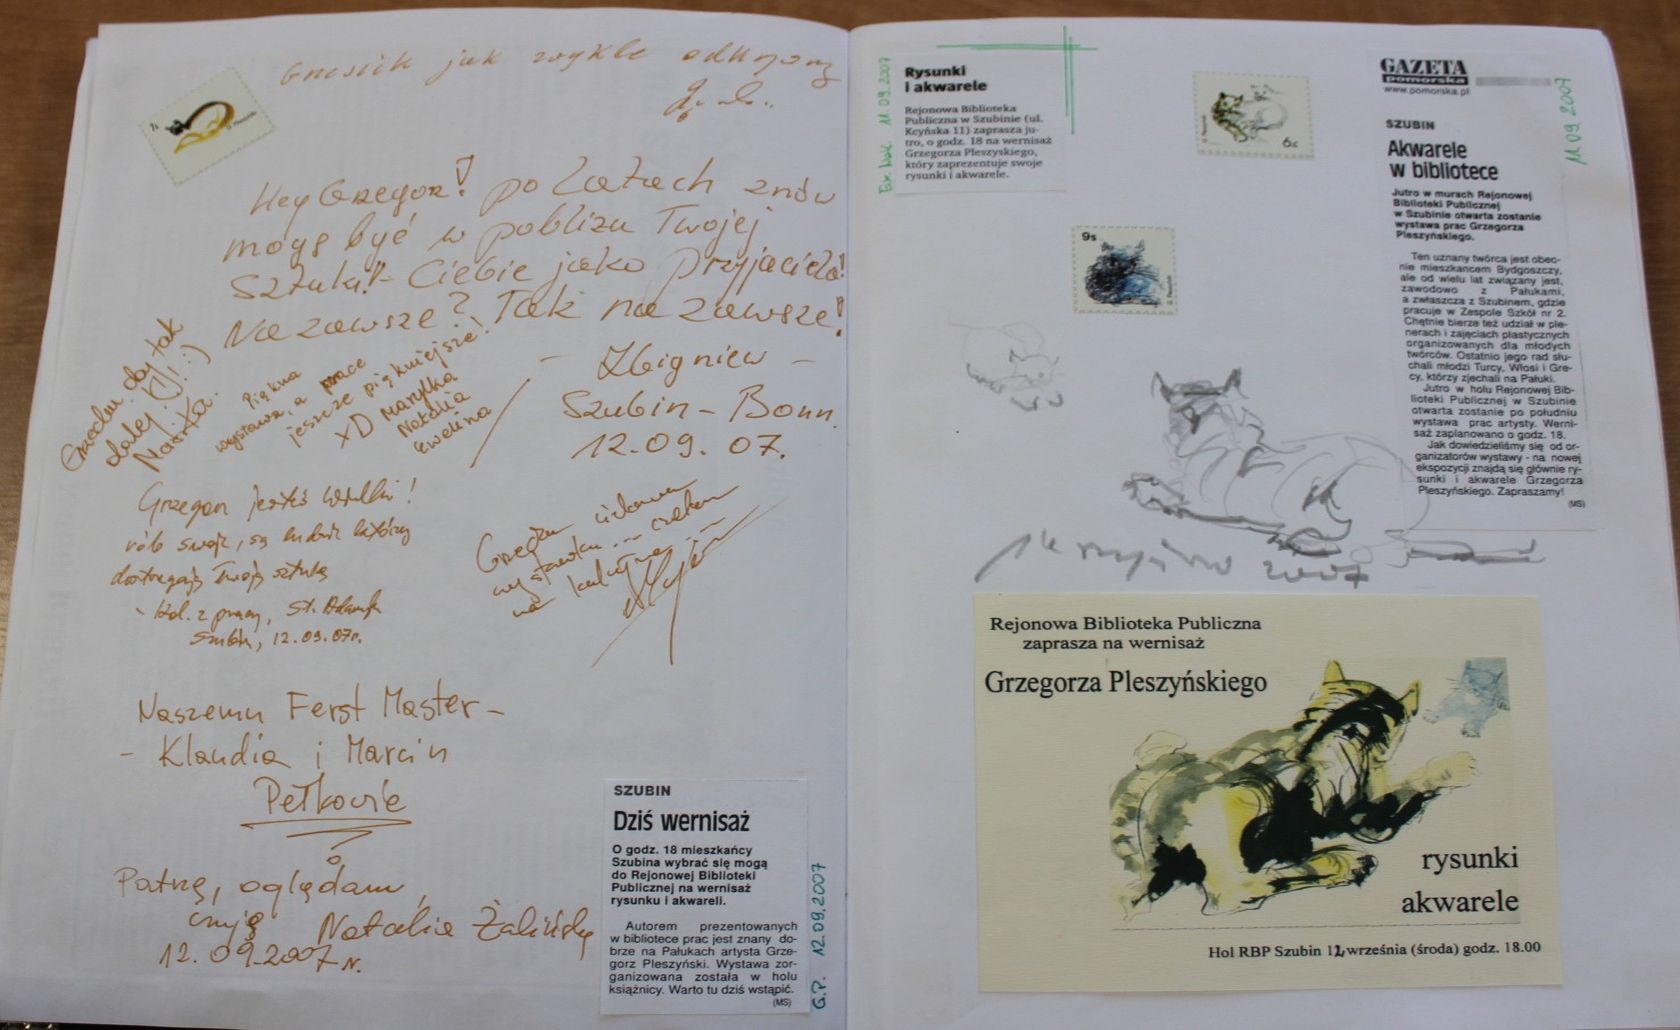 Grzesiek jak zwykle odlotowy
7s
G. Pleszyński
Hey Grzegor! po latach znów
mogę być w pobliżu Twojej
Sztuki!- Ciebie jako Przyjaciela!
Na zawsze? Tak na zawsze!
- Zbigniew -
Szubin - Bonn.
12.09. 07.
Grzechu. oby tak
dalej
:)
Piękna
wystawa, a prace
jeszcze piękniejsze!
XD Marylka
Natalia
Ewelina
Grzegorz jesteś wielki!
rób swoje, są ludzie którzy
dostrzegają Twoją sztukę
- kol. z pracy, St.
Szubin, 12.09.07r.
Grzechu ciekawa
wystawka... czekam
na kolejne
Naszemu Ferst Master -
- Klaudia i Marcin
Pełkowie
Patrzę, oglądam,
czuję Natalia
12.09.2007r.
SZUBIN
Dziś wernisaż
O godz. 18 mieszkańcy
Szubina wybrać się mogą
do Rejonowej Biblioteki
Publicznej na wernisaż
rysunku i akwareli.
Autorem prezentowanych
w bibliotece prac jest znany do-
brze na Pałukach artysta Grze-
gorz Pleszyński. Wystawa zor-
ganizowana została w holu
książnicy. Warto tu dziś wstąpić.
(MS)
G.P. 12.09.2007
Ex. byd. 11.09.2007
Rysunki
i akwarele
Rejonowa Biblioteka
Publiczna w Szubinie (ul.
Kcyńska 11) zaprasza ju-
tro, o godz. 18 na wernisaż
Grzegorza Pleszyskiego,
który zaprezentuje swoje
rysunki i akwarele.
6s
9s
G. Pleszyński
GAZETA
pomorska
www.pomorska.pl
11.09.2007
SZUBIN
Akwarele
w bibliotece
Jutro w murach Rejonowej
Biblioteki Publicznej
w Szubinie otwarta zostanie
wystawa prac Grzegorza
Pleszyńskiego.
Ten uznany twórca jest obec-
nie mieszkańcem Bydgoszczy,
ale od wielu lat związany jest,
zawodowo z Pałukami,
a zwłaszcza z Szubinem, gdzie
pracuje w Zespole Szkół nr 2.
Chętnie bierze też udział w ple-
nerach i zajęciach plastycznych
organizowanych dla młodych
twórców. Ostatnio jego rad słu-
chali młodzi Turcy, Włosi i Gre-
cy, którzy zjechali na Pałuki.
Jutro w holu Rejonowej Bib-
lioteki Publicznej w Szubinie
otwarta zostanie po południu
wystawa prac artysty. Werni-
saż zaplanowano o godz. 18.
Jak dowiedzieliśmy się od or-
ganizatorów wystawy - na nowej
ekspozycji znajdą się głównie ry-
sunki i akwarele Grzegorza
Pleszyńskiego. Zapraszamy!
(MS)
2007
Rejonowa Biblioteka Publiczna
zaprasza na wernisaż
Grzegorza Pleszyńskiego
rysunki
akwarele
Hol RBP Szubin 12 września (środa) godz. 18.00